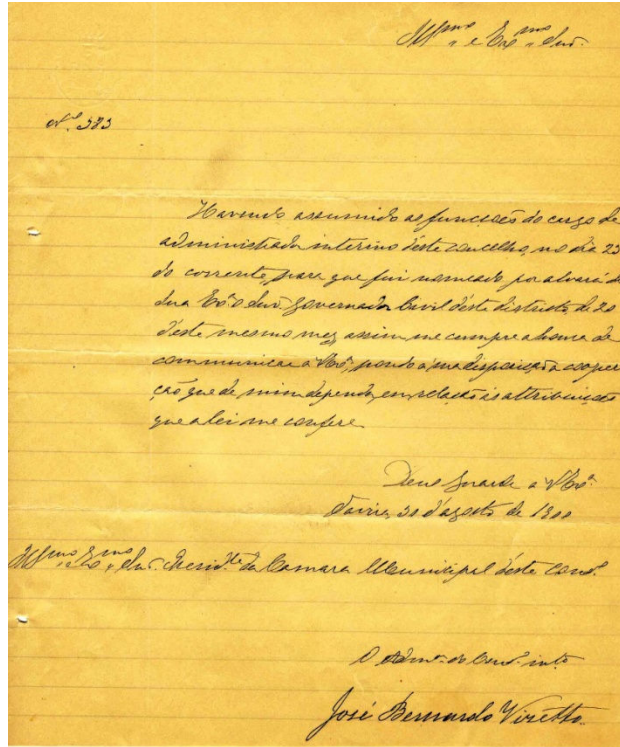 Ill.mo e Ex.mo Snr.
N.º 383
Havendo assumido as funcções do cargo de
administrador interino d'este concelho, no dia 23
do corrente, para que fui nomeado por alvará de
Sua Ex.ª o Snr. Governador Civil d'este districto de 20
d'este mesmo mez, assim me cumpre a honra de
communicar a V. Ex.ª, pondo á sua disposição a coope
ração que de mim dependa, em relação ás attribuições
que a lei me confere.
Deus Guarde a V. Ex.ª
Tavira, 30 d'agosto de 1900
Ill.mo e Ex.mo Snr. Presid.te da Camara Municipal d'este conc.º
O Adm.or do Conc.º int.o
José Bernardo Vizetto